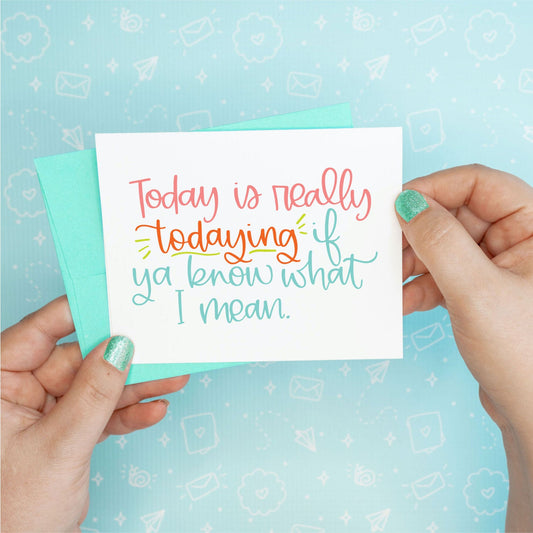 Today is really
todaying if
ya know what
I mean.